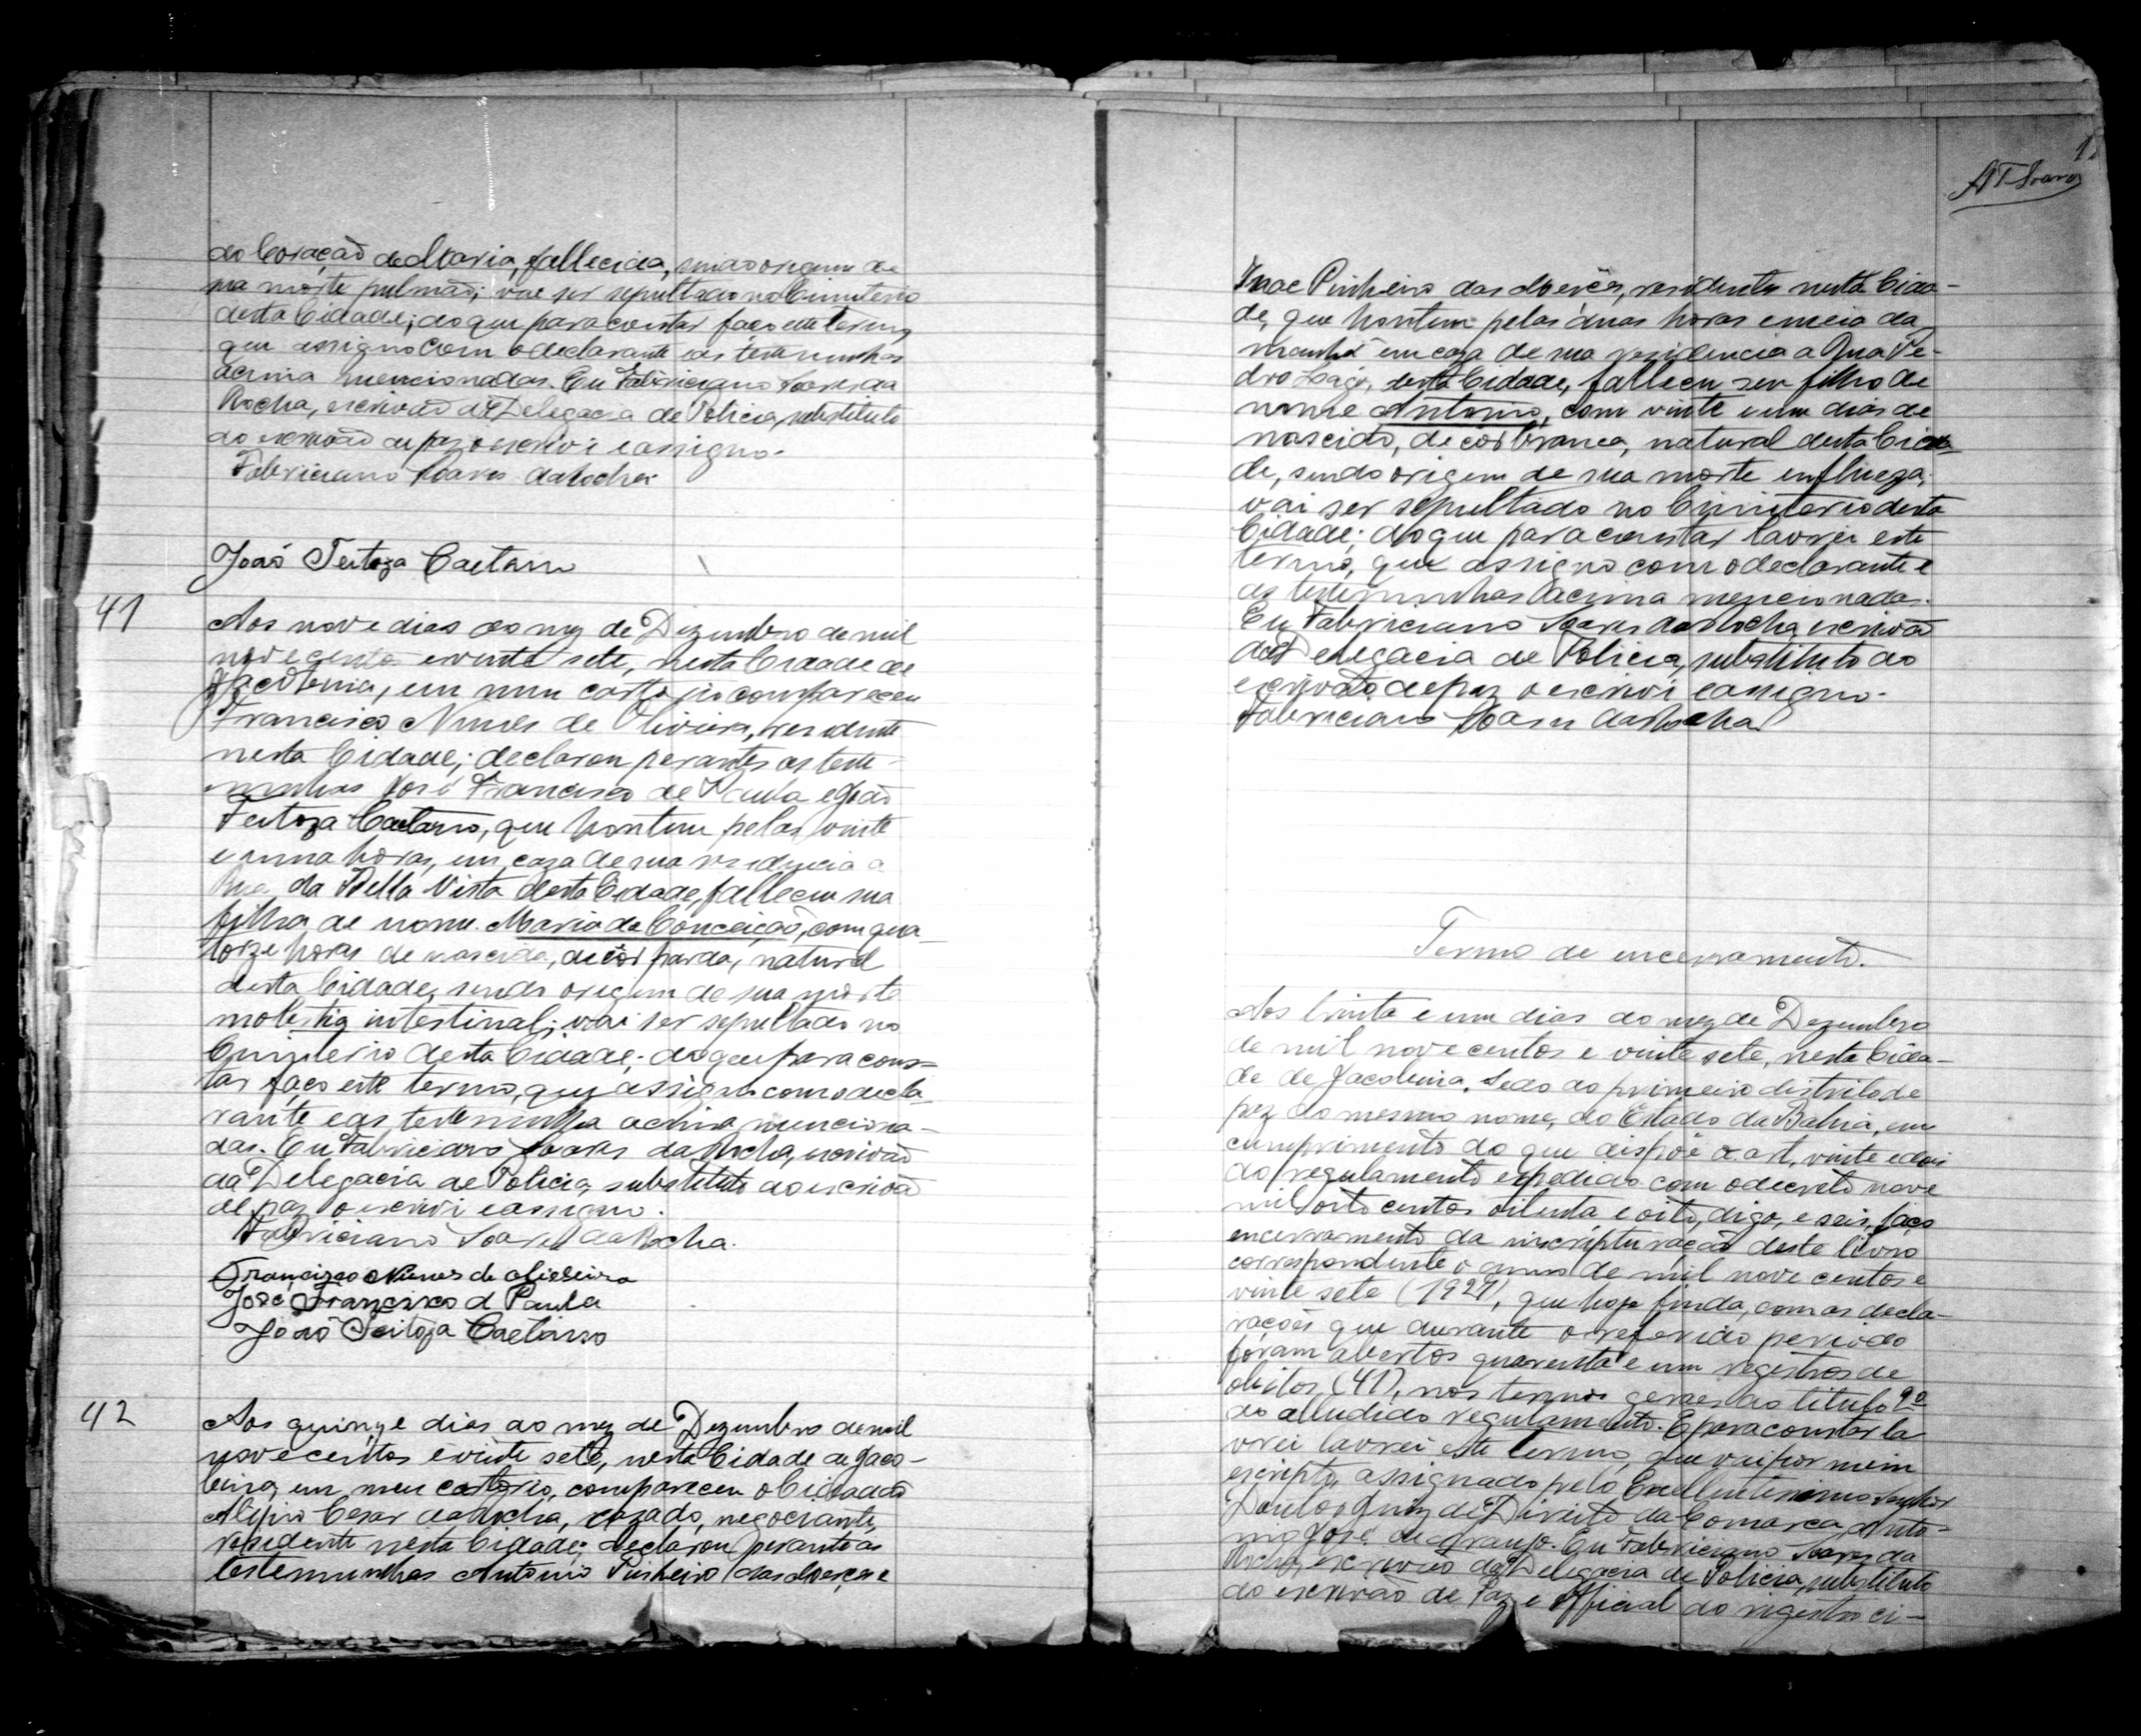 do Coração de Maria, fallecida, sendo origem de
sua morte pulmão; vae ser sepultado no Cimiterio
desta Cidade; do que para constar faço este termo,
que assigno com o declarante e as testemunhas
acima mencionadas. Eu Fabriciano Soares da
Rocha, escrivão da Delegacia de Policia, substituto
do escrivão de paz o escrivi e assigno.
Fabriciano Soares da Rocha
João Teitoza Caetano
41
Aos nove dias do mez de Dezembro de mil
novecentos e vinte sete, nesta Cidade de
Jacobina, em meu cartorio compareceu
Francisco Nunes de Oliveira, residente
nesta Cidade; declarou perante as teste-
munhas José Francisco de Paula e João
Teitoza Caetano, que hontem pelas vinte
e uma horas, em caza de sua residencia a
Rua da Bella Vista desta Cidade, falleceu sua
filha de nome Maria da Conceição, com qua-
torze horas de nascida, de côr parda, natural
desta Cidade, sendo origem de sua morte
molestia intestinal; vai ser sepultado no
Cimiterio desta Cidade; do que para cons-
tar faço este termo, que assigno com o decla-
rante e as testemunha acima menciona-
das. Eu Fabriciano Soares da Rocha, escrivão
da Delegacia de Policia, substituto do escrivão
de paz o escrivi e assigno.
Fabriciano Soares da Rocha.
Francisco Nunes de Olieleira
José Francisco d Paula
João Teitoza Caetano
42
Aos quinze dias do mez de Dezembro de mil
novecentos e vinte sete, nesta Cidade de Jaco-
bina, em meu cartorio, compareceu o Cidadão
Alipio Cesar da Rocha, cazado, negociante,
residente nesta Cidade; declarou perante as
testemunhas Antonio Pinheiro das Mercês e
Pinheiro das Mercês, residentes nesta Cida-
de, que hontem pelas duas horas e meia da
manhã em caza de sua residencia a Rua Pe-
dro Lago, desta Cidade, falleceu seu filho de
nome Antonio, com vinte e um dias de
nascido, de côr branca, natural desta Cida-
de, sendo origem de sua morte influeza;
vai ser sepultado no Cimiterio desta
Cidade; do que para constar lavrei este
termo, que assigno com o declarante e
as testemunhas acima mencionadas.
Eu Fabriciano Soares da Rocha, escrivão
da Delegacia de Policia, substituto do
escrivão de paz o escrivi e assigno.
Fabriciano Soares da Rocha
Termo de encerramento.
Aos trinta e um dias do mez de Dezembro
de mil novecentos e vinte sete, nesta Cida-
de de Jacobina, Sede do primeiro districto de
paz do mesmo nome, do Estado da Bahia, em
cumprimento do que dispõe o art. vinte e dois
do regulamento expedido com o decreto nove
mil oito centos oitenta e oito, digo, e seis, faço
encerramento da inscripturação deste livro
correspondente o anno de mil nove centos e
vinte sete (1927), que hoje finda, com as decla-
rações que durante o referido periodo
foram abertos quarenta e um registros de
obitos (41), nos termos geraes do titulo 9º
do alludido regulamento. E para constar la-
vrei lavrei este termo, que vai por mim
escripto, assignado pelo Excellentissimo Senhor
Doutor Juiz de Direito da Comarca, Anto-
nio José de Araujo. Eu Fabriciano Soares da
Rocha, escrivão da Delegacia de Policia, substituto
do escrivão de Paz e Official do registro ci-